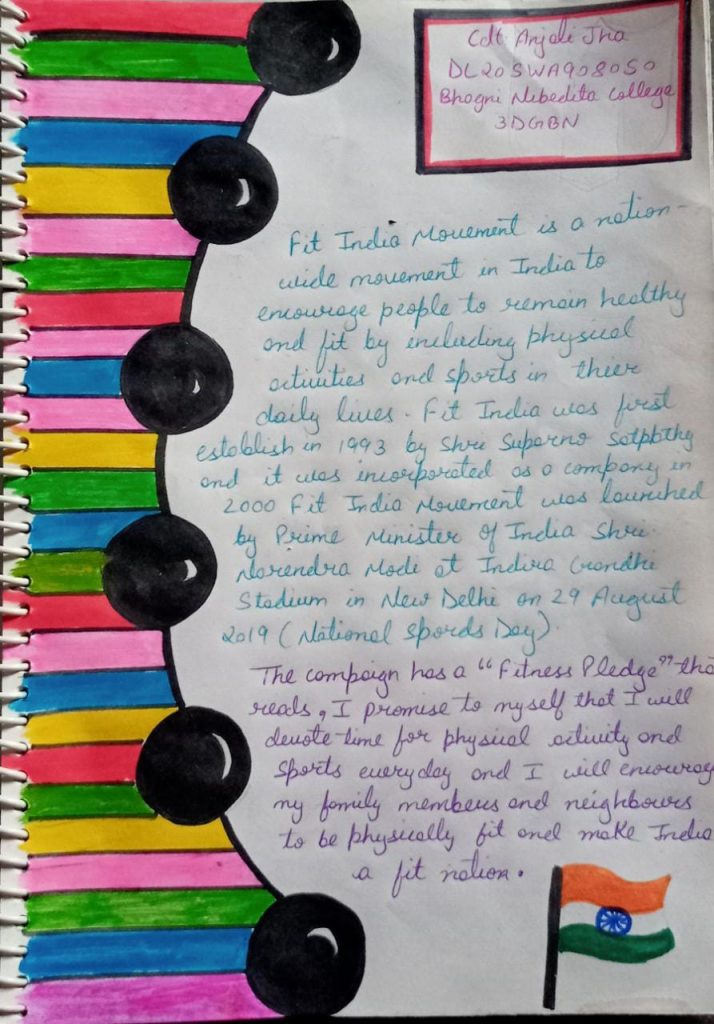 Cdt Anjali Jha
DL20SWA908050
Bhagni Nibedita College
3DGBN
Fit India Movement is a nation-
wide movement in India to
encourage people to remain healthy
and fit by including physical
activities and sports in thier
daily lives. Fit India was first
establish in 1993 by Shri Suparno Satpbthy
and it was incorporated as a company in
2000 Fit India Movement was launched
by Prime Minister of India Shri.
Narendra Modi at Indira Grandhi
Stadium in New Delhi on 29 August
2019 (National Spords Day).
The campaign has a "Fitness Pledge" tha
reads, I promise to myself that I will
devote time for physical activity and
sports everyday and I will encourag
my family members and neighbours
to be physically fit and make India
a fit nation.